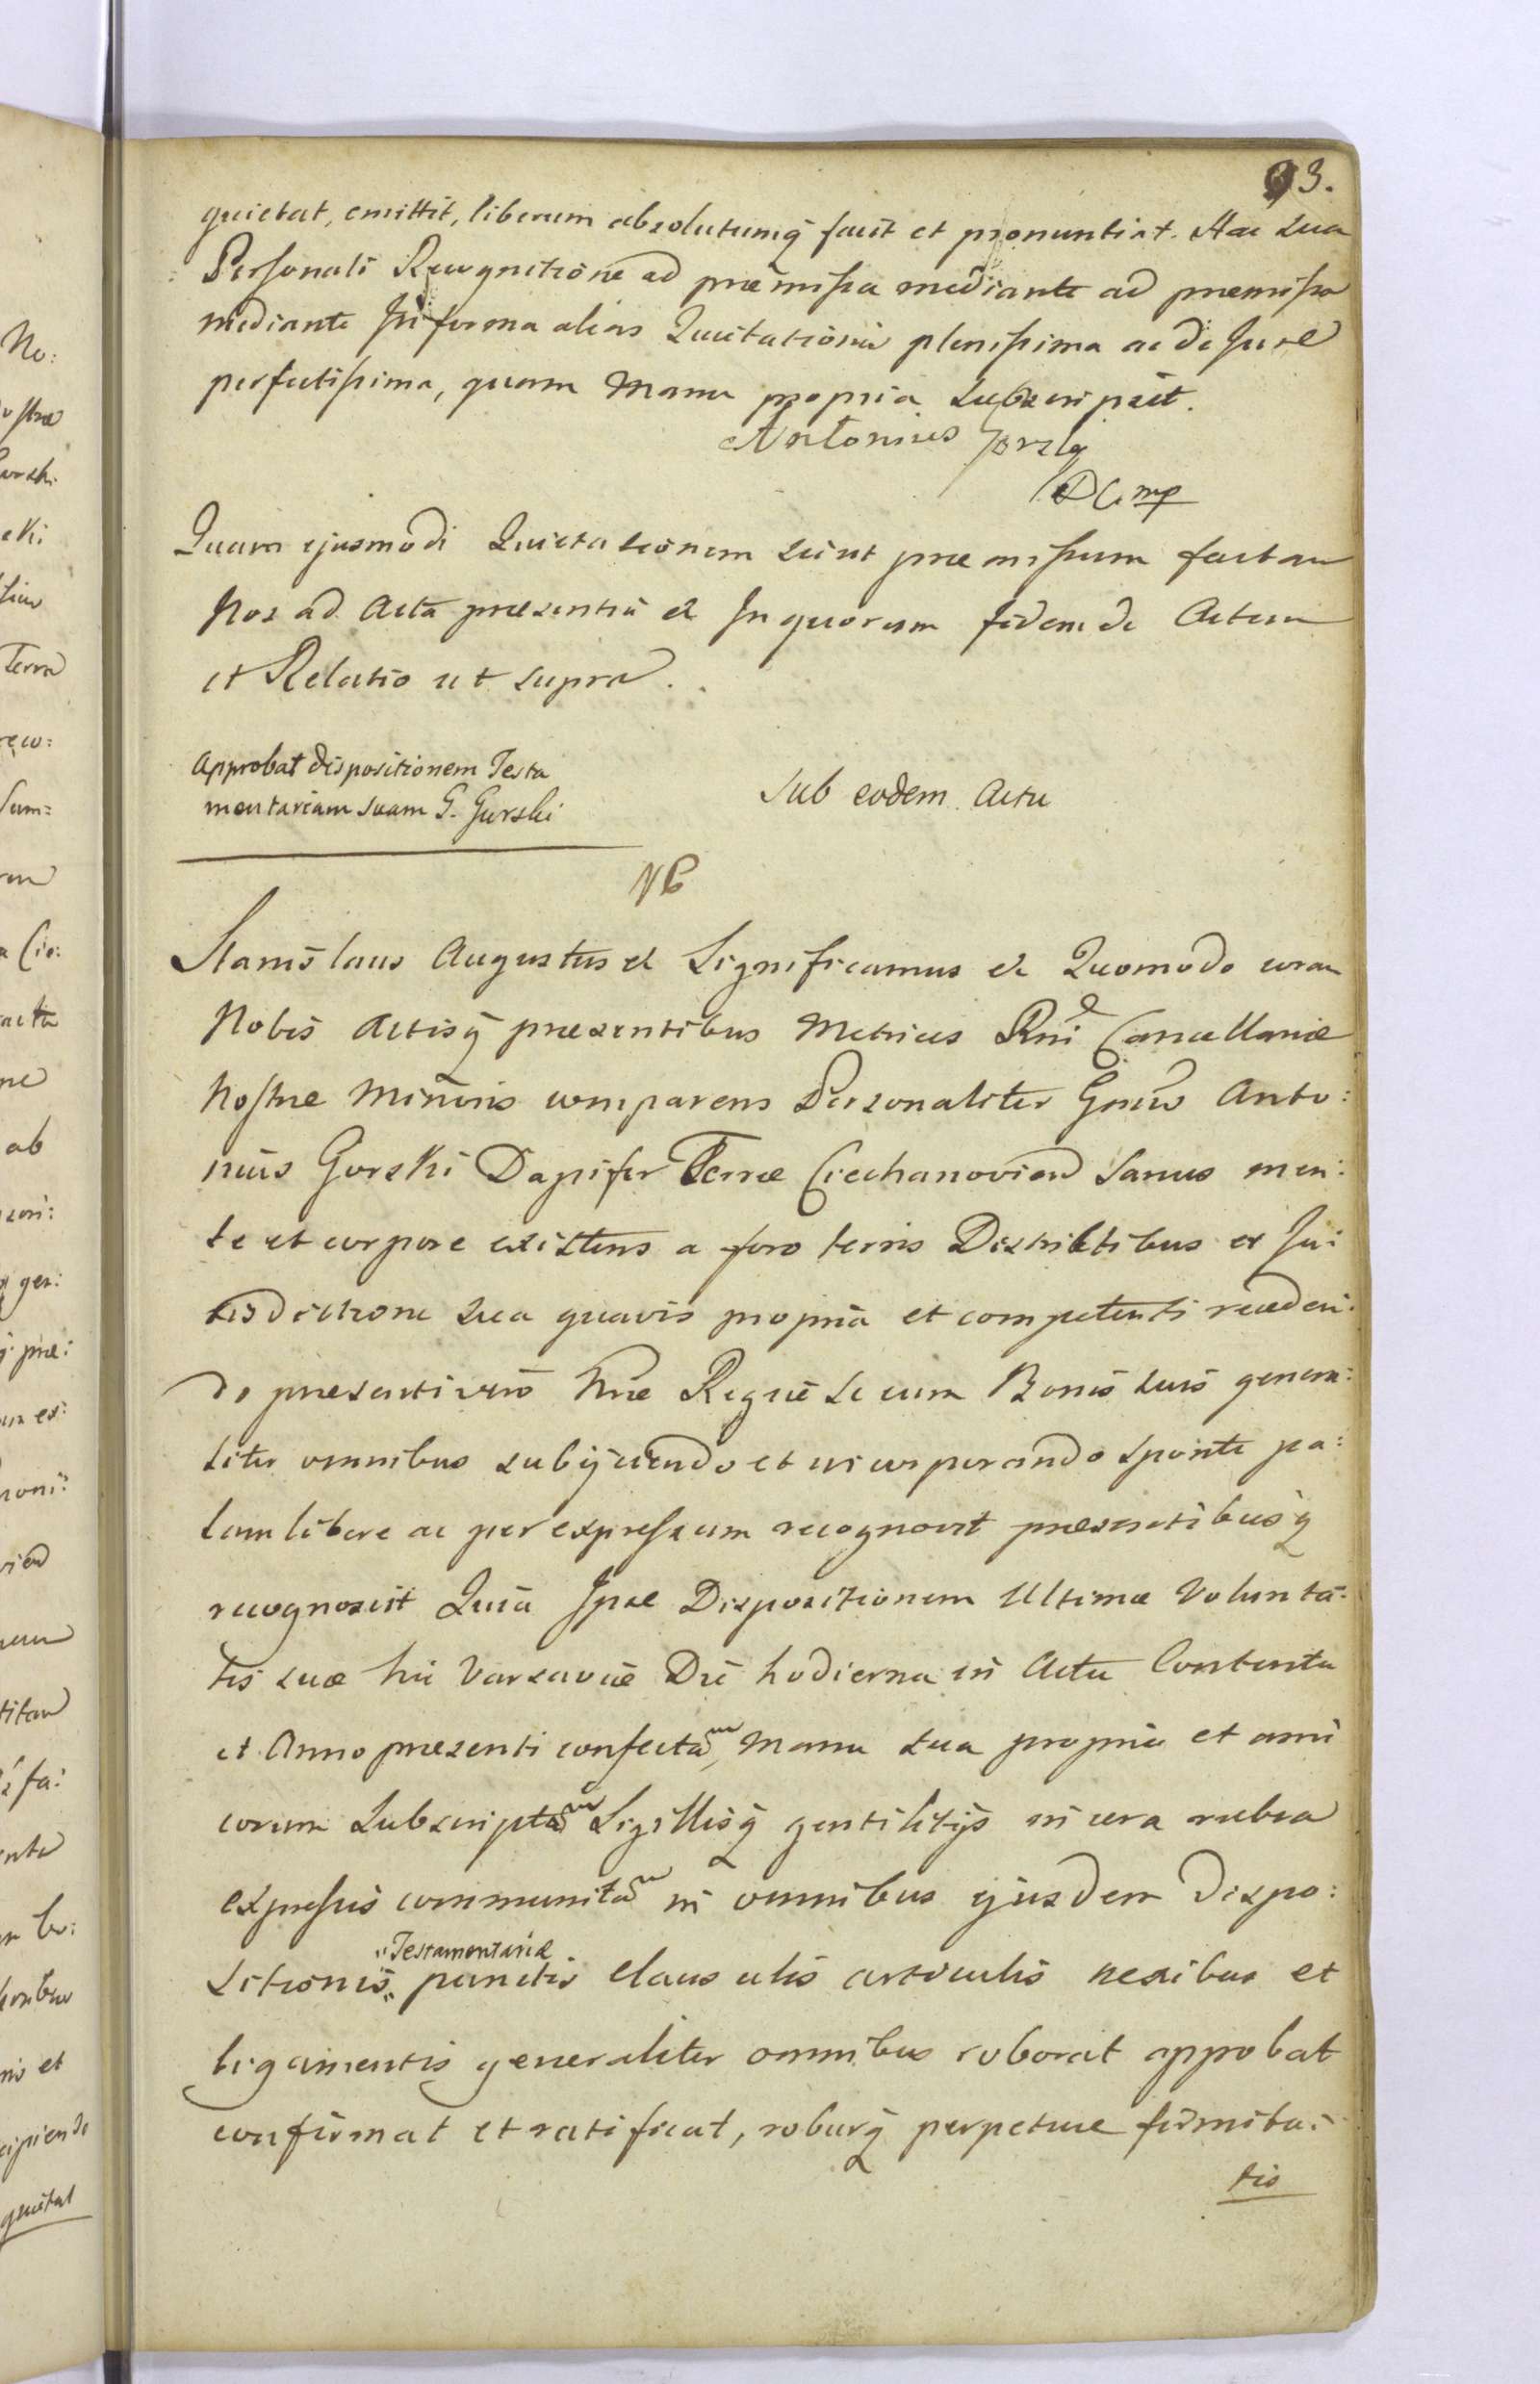 93.
quietat, emittit, liberum absolutumq facit et pronuntiat. Hac sua
Personali Recognitione ad præmissa mediante ad præmissa
mediante In forma alias Quietationis plenissima ac de Jure
perfectissima, quam Manu propria subscripsit.
Antonius
mp
Quam ejusmodi Quietationem sicut præmissum factam
Nos ad Acta præsentia &c In quorum fidem &c Actum
et Relatio ut supra.
Approbat dispositionem Testa
mentariam suam G. Gurski
Sub eodem Actu
NB
Stanislaus Augustus &c Significamus &c Quomodo coram
Nobis Actisq præsentibus Metrices Rni Cancellariæ
Nostræ Minoris comparens Personaliter Gnsus Anto:
nius Gorski Dapifer Terræ Ciechanovien Sanus men:
te et corpore existens a foro terris Districtibus et Ju:
risdictione sua quavis propria et competenti receden:
do præsenti vero huic Regiæ se cum Bonis suis genera:
liter omnibus subijciendo et incorporando sponte pa:
lam libere ac per expressum recognovit præsentibusq
recognoscit Quia Ipse Dispositionem Ultimæ Volunta:
tis suæ hic Varsaviæ Die hodierna in Actu Contenta
et Anno præsenti confectam, Manu sua propria et ami
corum Subscriptam Sigillisq gentilitijs in cera rubra
expressis communitam in omnibus ejusdem Dispo:
sitionis "Testamentariæ" punctis clausulis articulis nexibus et
ligamentis generaliter omnibus roborat approbat
confirmat et ratificat, roburq perpetuæ firmita:
tis